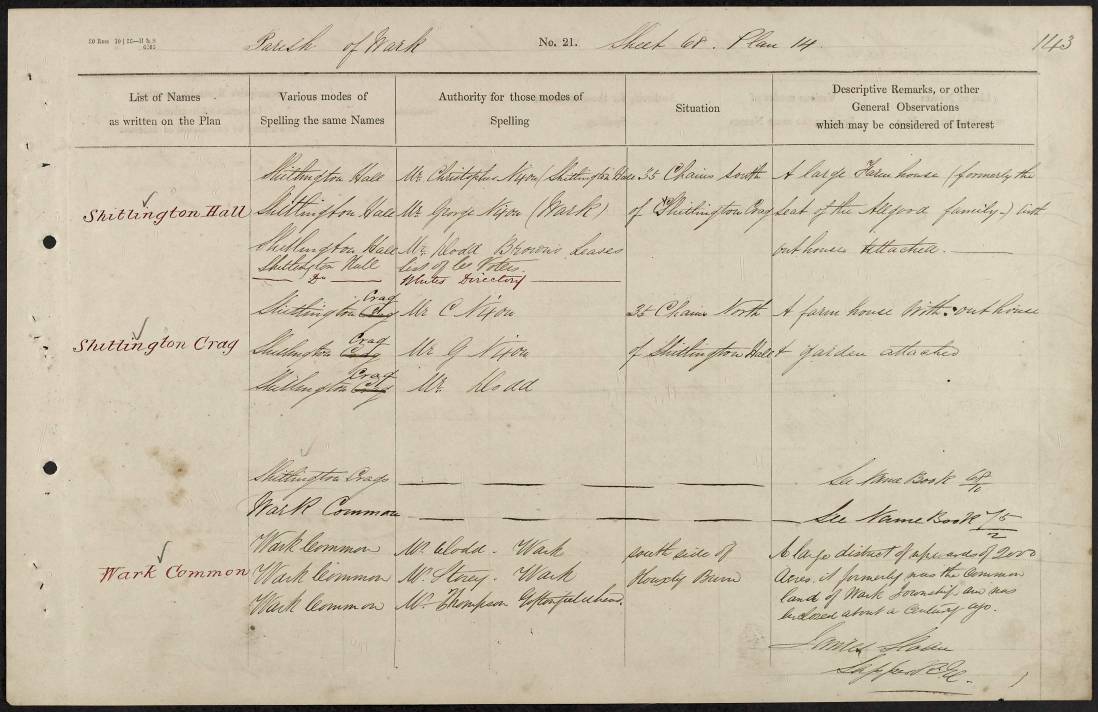 Parish of Wark No. 21. Sheet 68. Plan 14. 143
List of Names
as written on the Plan
Various modes of
Spelling the same Names
Authority for those modes of
Spelling
Situation
Descriptive Remarks, or other
General Observations
which may be considered of Interest
Shitlington Hall
Shitlington Hall Mr Christopher Nixon (Shitlington Hall 35 Chains South A large Farm house (formerly the
Shitlington Hall Mr George Nixon (Wark) of Shitlington Crag Seat of the Allgood family) with
Shitlington Hall Mr Dodd Browns Leases outhouses Attached.
Shitlington Hall List of Co Voters.
Do Whites Directory
Shitlington Crag
Shitlington Crag Mr C Nixon 35 Chains North A farm house With outhouse
Shitlington Crag Mr G Nixon of Shitlington Hall & garden attached
Shitlington Crag Mr Dodd
Shitlington Crags See Name Book 68/10
Wark Common See Name Book 75/2
Wark Common
Wark Common Mr. Dodd. Wark south side of A large district of upwards of 2000
Wark Common Mr. Storey. Wark Houxty Burn Acres. it formerly was the Common
Wark Common Mr. Thompson land of Wark Township, and was
inclosed about a Century ago.
James Sloan
Sapper R.E.